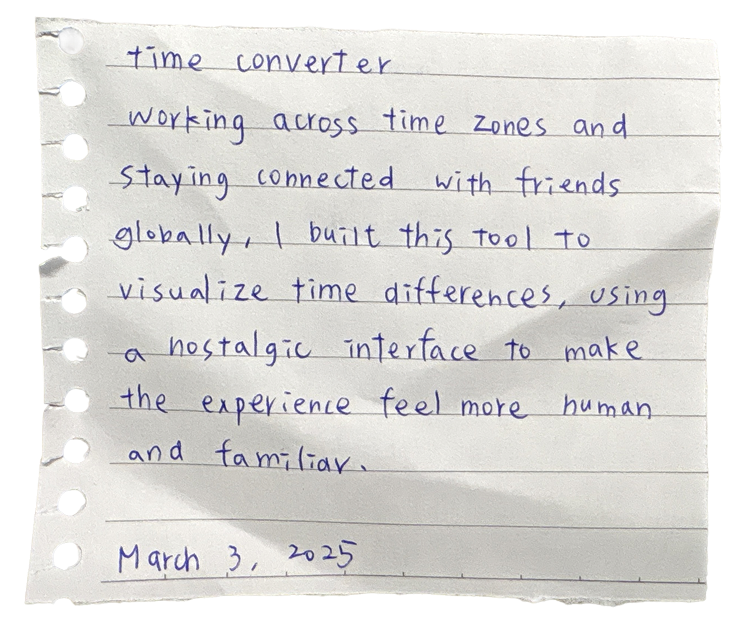 time converter
working across time zones and
staying connected with friends
globally, I built this tool to
visualize time differences, using
a nostalgic interface to make
the experience feel more human
and familiar.
March 3, 2025